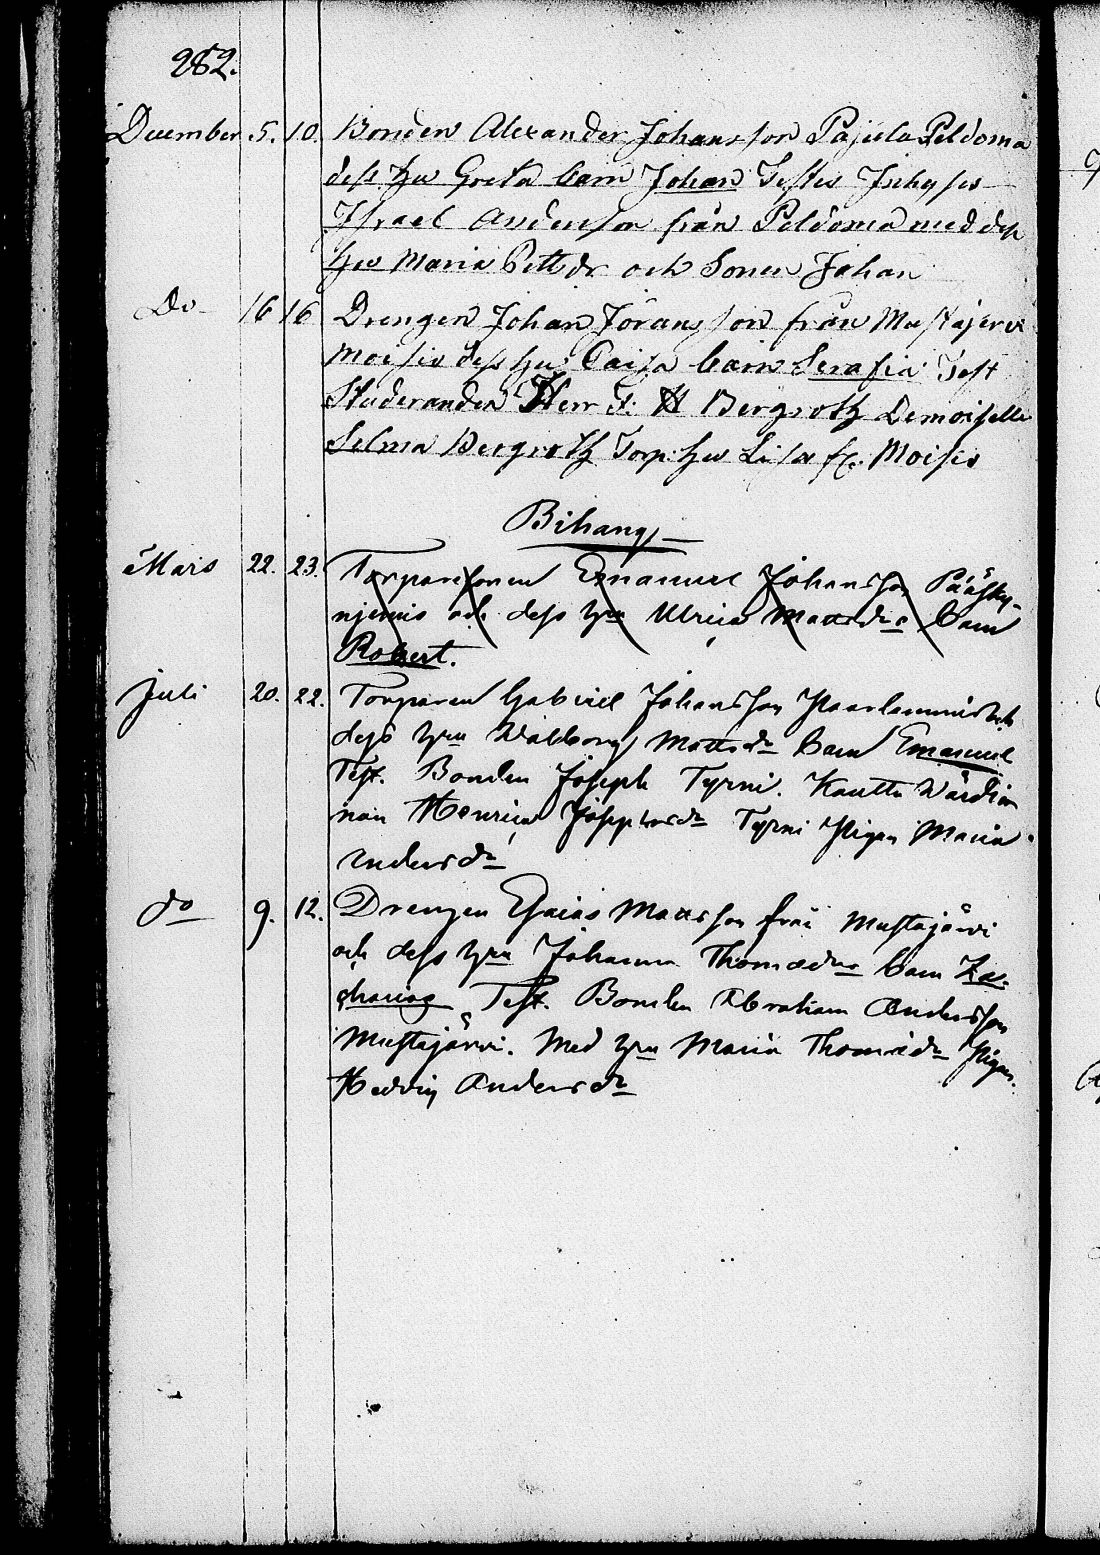 282.
December 5. 10. Bonden Alexander Johansson Pajula Peldoma
dess hu Greta barn Johan Testes Inhyses
Israel Andersson från Peldoma med dess
hu Maria Pettsdr och Sonen Johan
Do 16 16 Drengen Johan Göransson från Mustajervi
Moisio dess hu Caisa barn Serafia Test
Studeranden Herr F. H Bergroth Demoiselle
Selma Bergroth Torp: hu Lisa fr. Moisio
Bihang
Mars 22. 23. Torparesonen Emanuel Johansson Pääsky-
njemis och dess hru Ulrica Mattsdr barn
Robert.
Juli 20. 22. Torparen Gabriel Johansson
dess hru Walborg Mattsdr barn Emanuel
Test. Bonden Joseph Tyrni. Kautto
nan Henrica Josephsdr Tyrni Pigan Maria
Andersdr
do 9. 12. Drengen Esaias Matsson från Mustajärvi
och dess hru Johanna Thomasdr barn Za-
charias Test. Bonden Abraham Andersson
Mustajärvi. Med hru Maria Thomasdr Pigan
Hedvig Andersdr